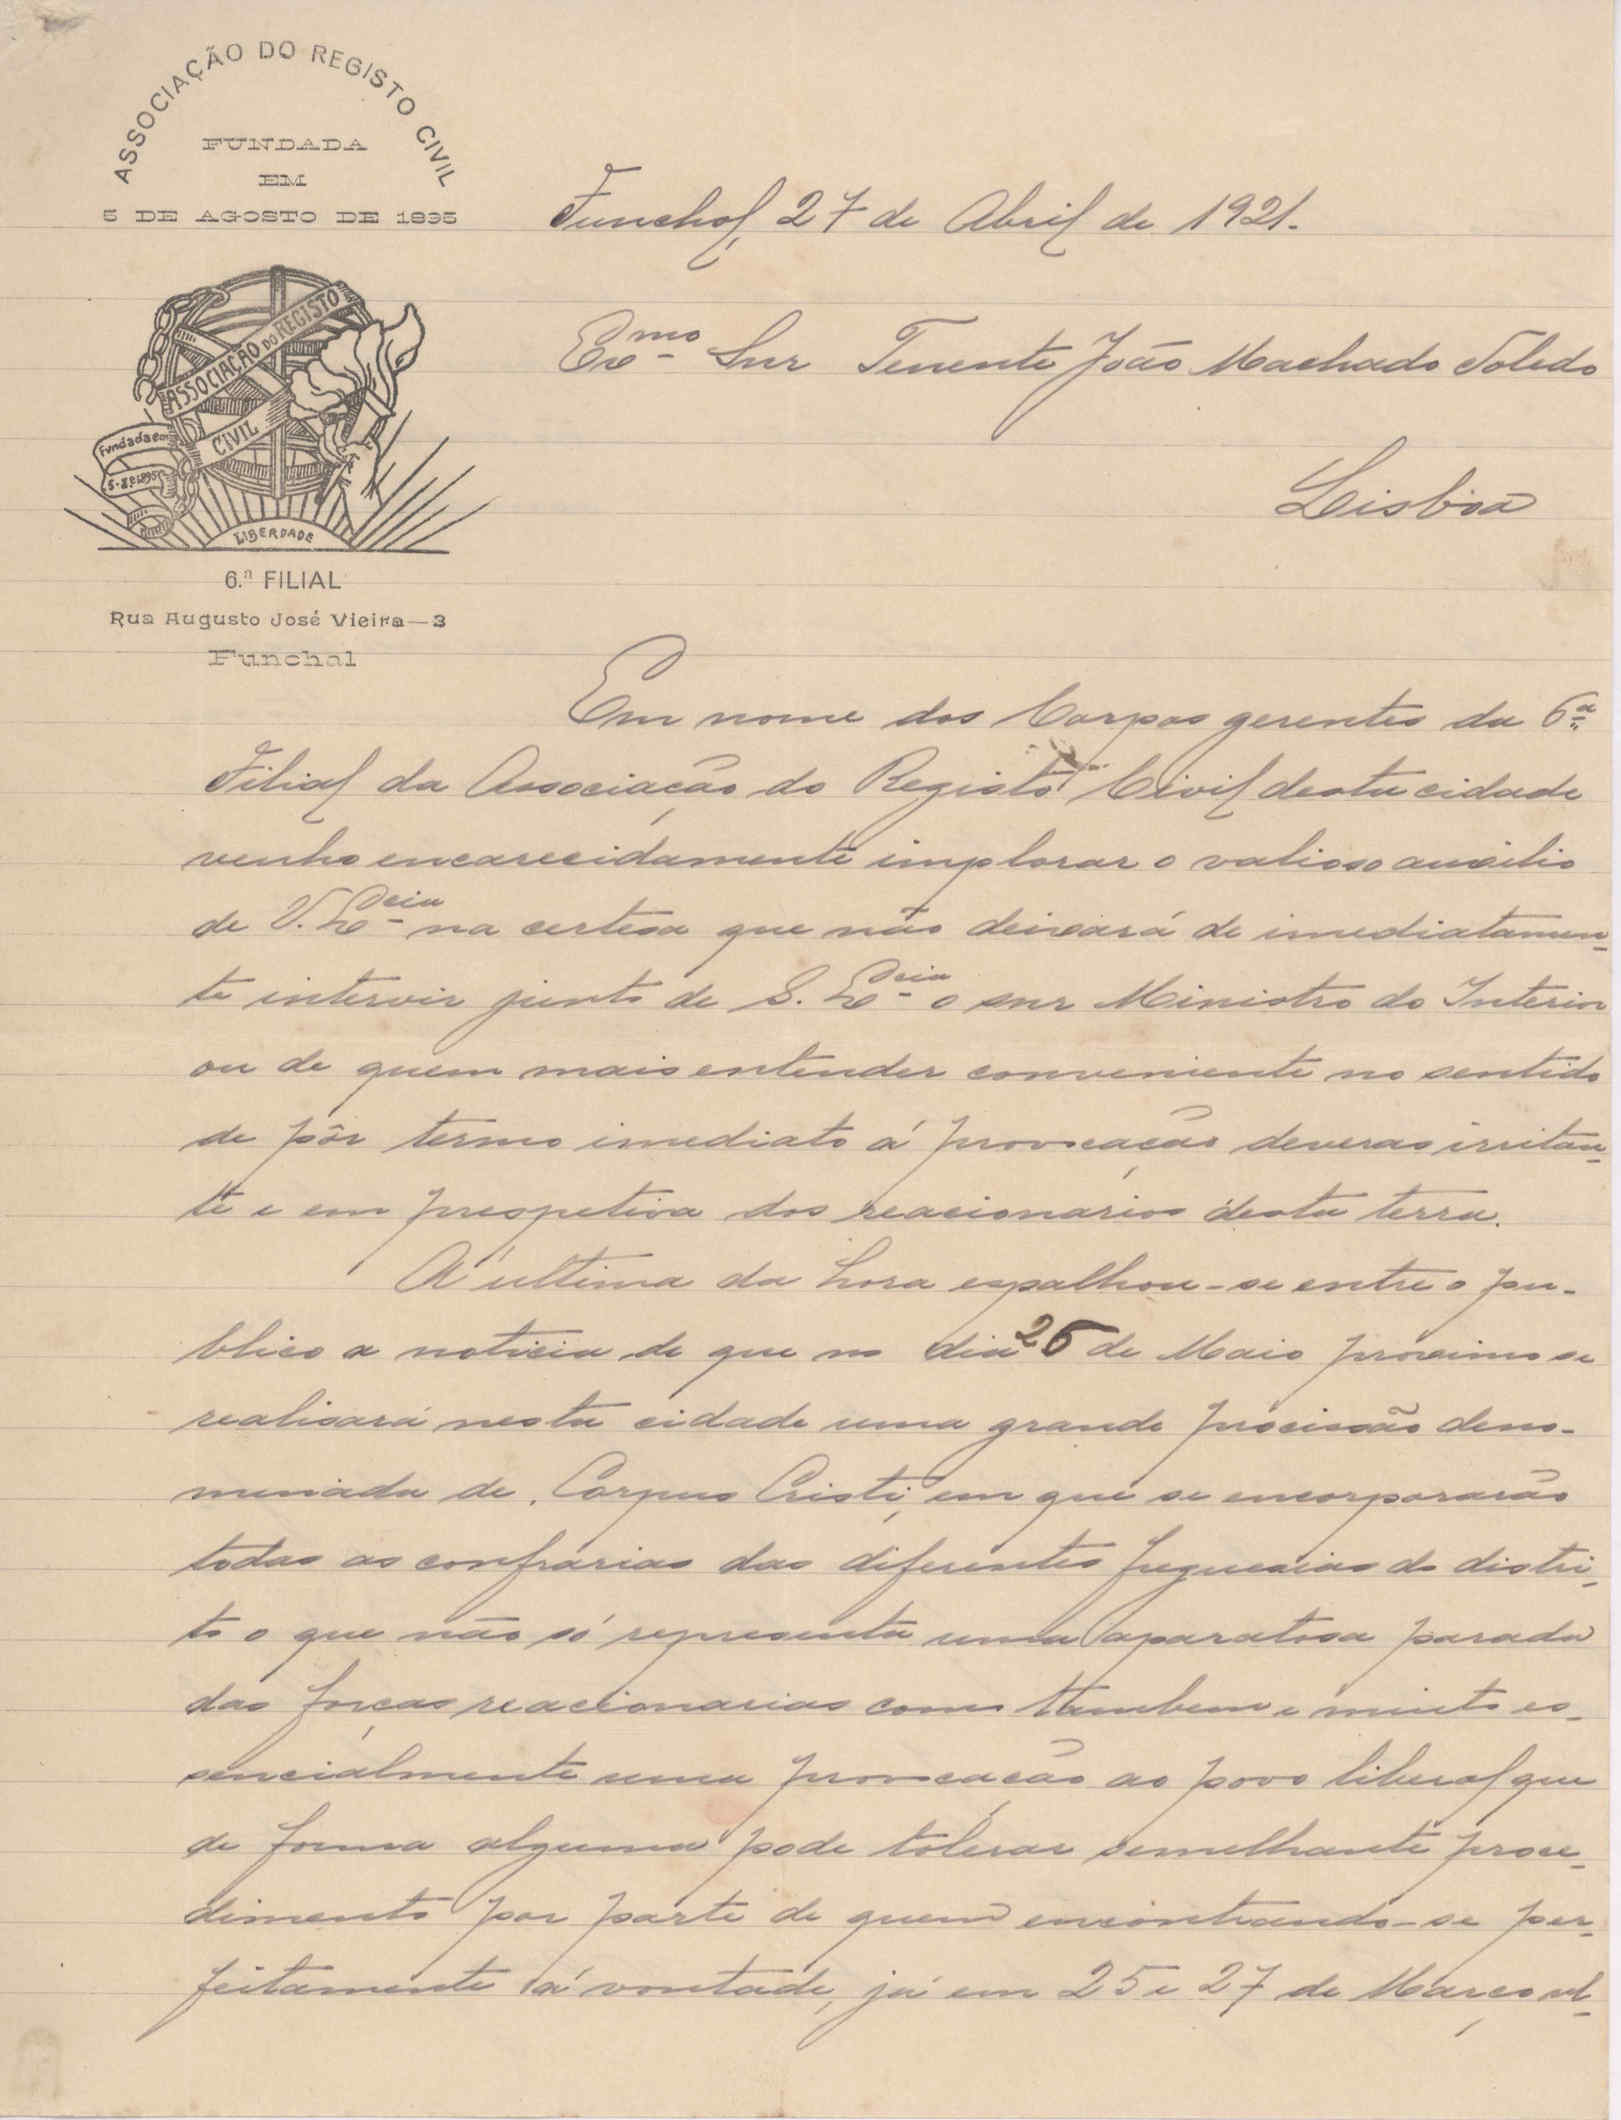 ASSOCIAÇÃO DO REGISTO CIVIL
FUNDADA
EM
5 DE AGOSTO DE 1895
ASSOCIAÇÃO DO REGISTO
CIVIL
Fundada em
5-8-1895
LIBERDADE
6.ª FILIAL
Rua Augusto José Vieira—3
Funchal
Funchal, 27 de Abril de 1921.
Ex.mo Snr Tenente João Machado Toledo
Lisboa
Em nome dos Corpos gerentes da 6ª
Filial da Associação do Registo Civil desta cidade
venho encarecidamente implorar o valioso auxilio
de V. Ex.cia na certesa que não deixará de imediatamen-
te intervir junto de S. Ex.cia o snr Ministro do Interior
ou de quem mais entender conveniente no sentido
de pôr termo imediato á provocação deveras irritan-
te e em prespetiva dos reacionarios desta terra.
A' ultima da hora espalhou-se entre o pu-
blico a noticia de que no dia 26 de Maio proximo se
realisará nesta cidade uma grande procissão deno-
minada de Corpus Cristi, em que se encorporarão
todas as confrarias das diferentes freguesias do distri-
to o que não só representa uma aparatosa parada
das forças reacionarias como tambem e muito es-
sencialmente uma provocação ao povo liberal que
de forma alguma pode tolerar semelhante proce-
dimento por parte de quem encontrando-se per-
feitamente á vontade, já em 25 e 27 de Março ul-